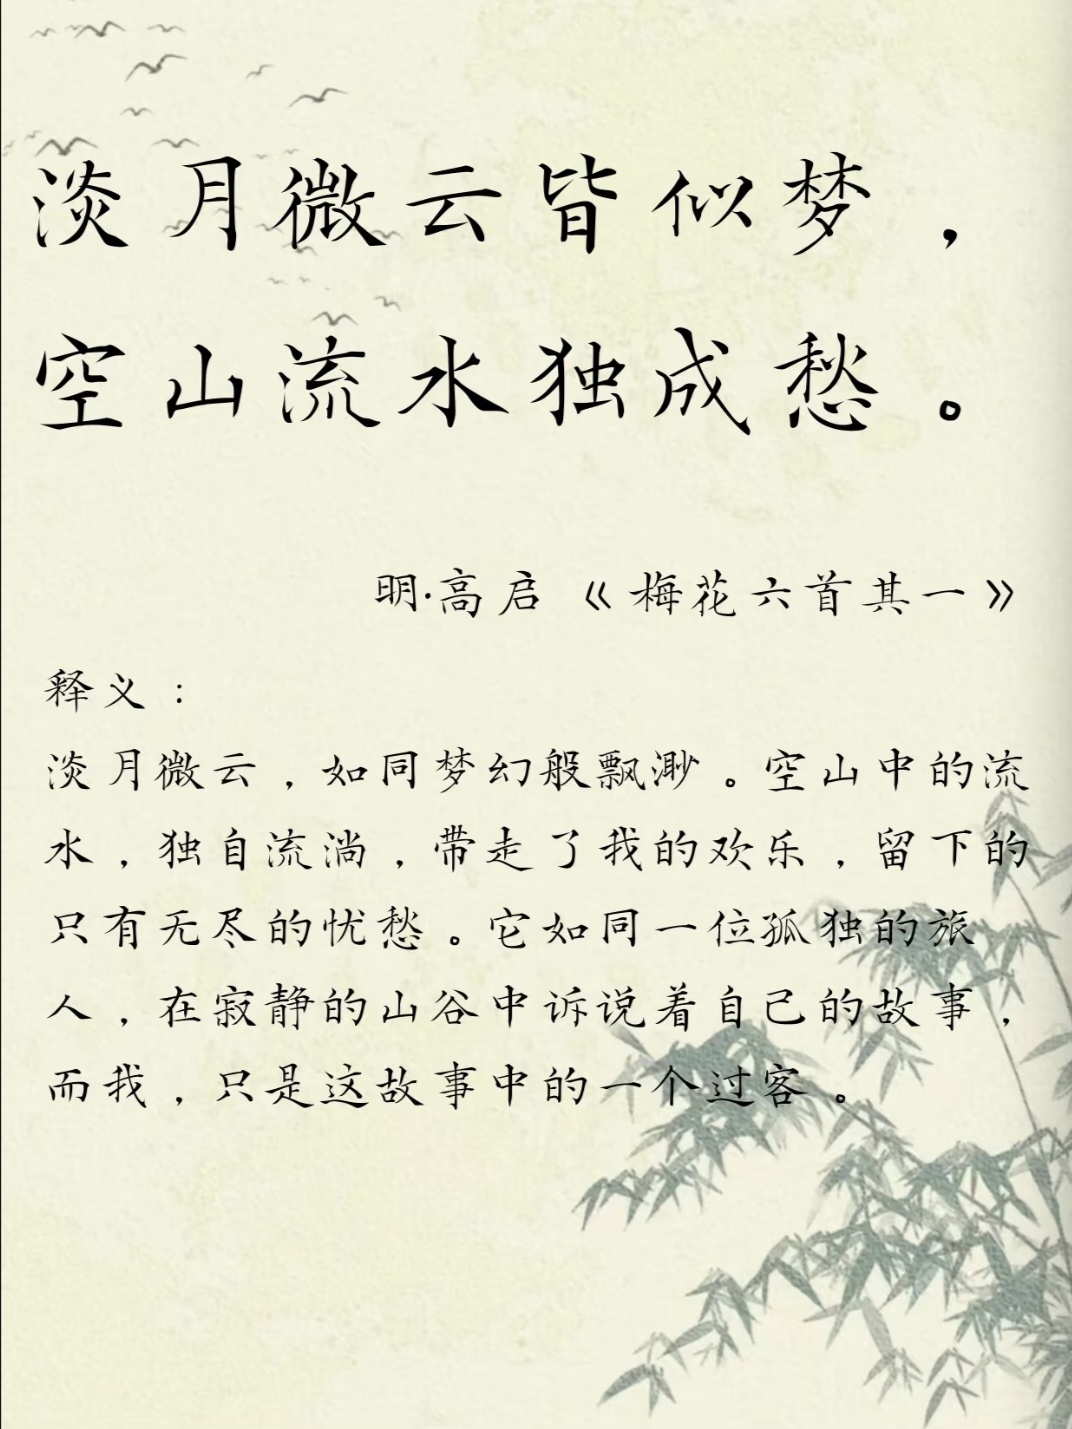 淡月微云皆似梦，
空山流水独成愁。
明·高启《梅花六首其一》
释义：
淡月微云，如同梦幻般飘渺。空山中的流
水，独自流淌，带走了我的欢乐，留下的
只有无尽的忧愁。它如同一位孤独的旅
人，在寂静的山谷中诉说着自己的故事，
而我，只是这故事中的一个过客。